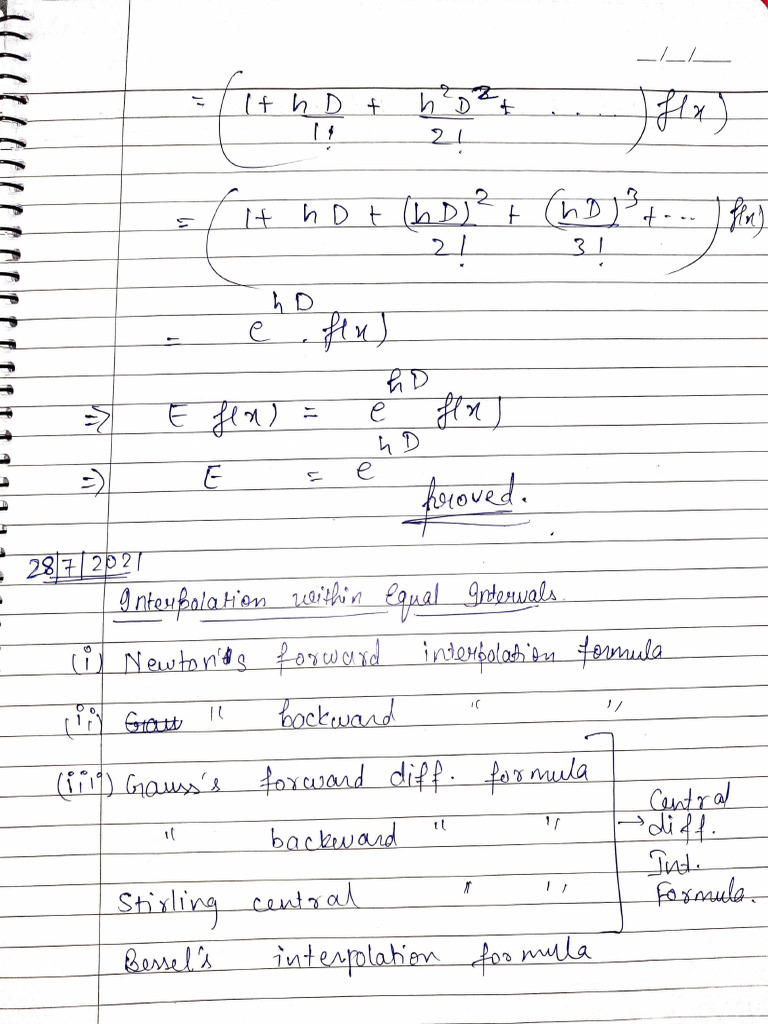 _/_/_
= (1 + hD/1! + h²D²/2! + .....) f(x)
= (1 + hD + (hD)²/2! + (hD)³/3! + ...) f(x)
= e^hD . f(x)
⇒ E f(x) = e^hD f(x)
⇒ E = e^hD
proved.
28/7/2021
Interpolation within Equal Intervals
(i) Newton's forward interpolation formula
(ii) " backward " "
(iii) Gauss's forward diff. formula
" backward " "
Stirling central " "
Bessel's interpolation formula
→ Central
diff.
Int.
Formula.